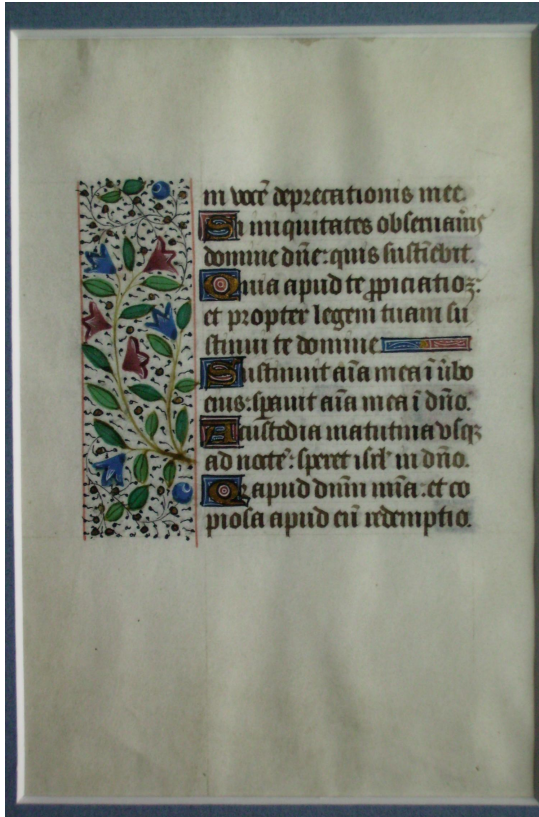 in vocē deprecationis mee.
Si iniquitates obseruau̅is
domine dn̄e: quis sustīebit.
Quia apud te ꝓpiciatioꝫ:
et propter legem tuam su
stinui te domine
Sustinuit aīa mea ī ūbo
eius: sꝑauit aīa mea ī dn̄o.
A custodia matutina usqꝫ
ad noctē: speret isrl̄ in dn̄o.
Q̄ apud dn̄m mīa: et co
piosa apud eū redemptio.